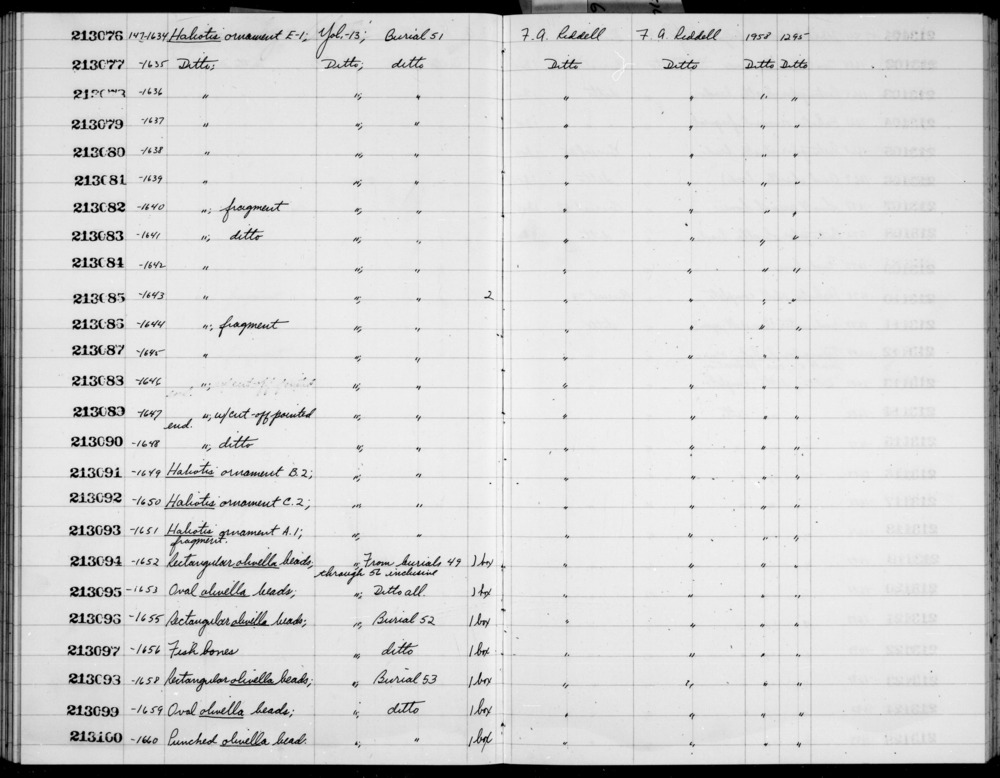 213076 147-1634 Haliotis ornament E-1; Yol.-13; Burial 51 F. A. Riddell F. A. Riddell 1958 1295
213077 -1635 Ditto; Ditto; ditto Ditto Ditto Ditto Ditto
-1636 " "; " " " " "
213079 -1637 " "; " " " " "
213080 -1638 " "; " " " " "
213081 -1639 " "; " " " " "
213082 -1640 "; fragment "; " " " " "
213083 -1641 "; ditto "; " " " " "
213084 -1642 " "; " " " " "
213085 -1643 " "; " 2 " " " "
213086 -1644 "; fragment "; " " " " "
213087 -1645 " "; " " " " "
213088 -1646 "; "; " " " " "
213089 -1647 "; w/cut-off pointed "; " " " " "
end.
213090 -1648 "; ditto "; " " " " "
213091 -1649 Haliotis ornament B.2; "; " " " " "
213092 -1650 Haliotis ornament C.2; "; " " " " "
213093 -1651 Haliotis ornament A.1; "; " " " " "
fragment.
213094 -1652 Rectangular olivella beads; " From burials 49 1 box " " " "
through 56 inclusive
213095 -1653 Oval olivella beads; "; Ditto all 1 box " " " "
213096 -1655 Rectangular olivella beads; "; Burial 52 1 box " " " "
213097 -1656 Fish bones "; ditto 1 box " " " "
213098 -1658 Rectangular olivella beads; "; Burial 53 1 box " " " "
213099 -1659 Oval olivella beads; "; ditto 1 box " " " "
213100 -1660 Punched olivella bead. "; " 1 box " " " "